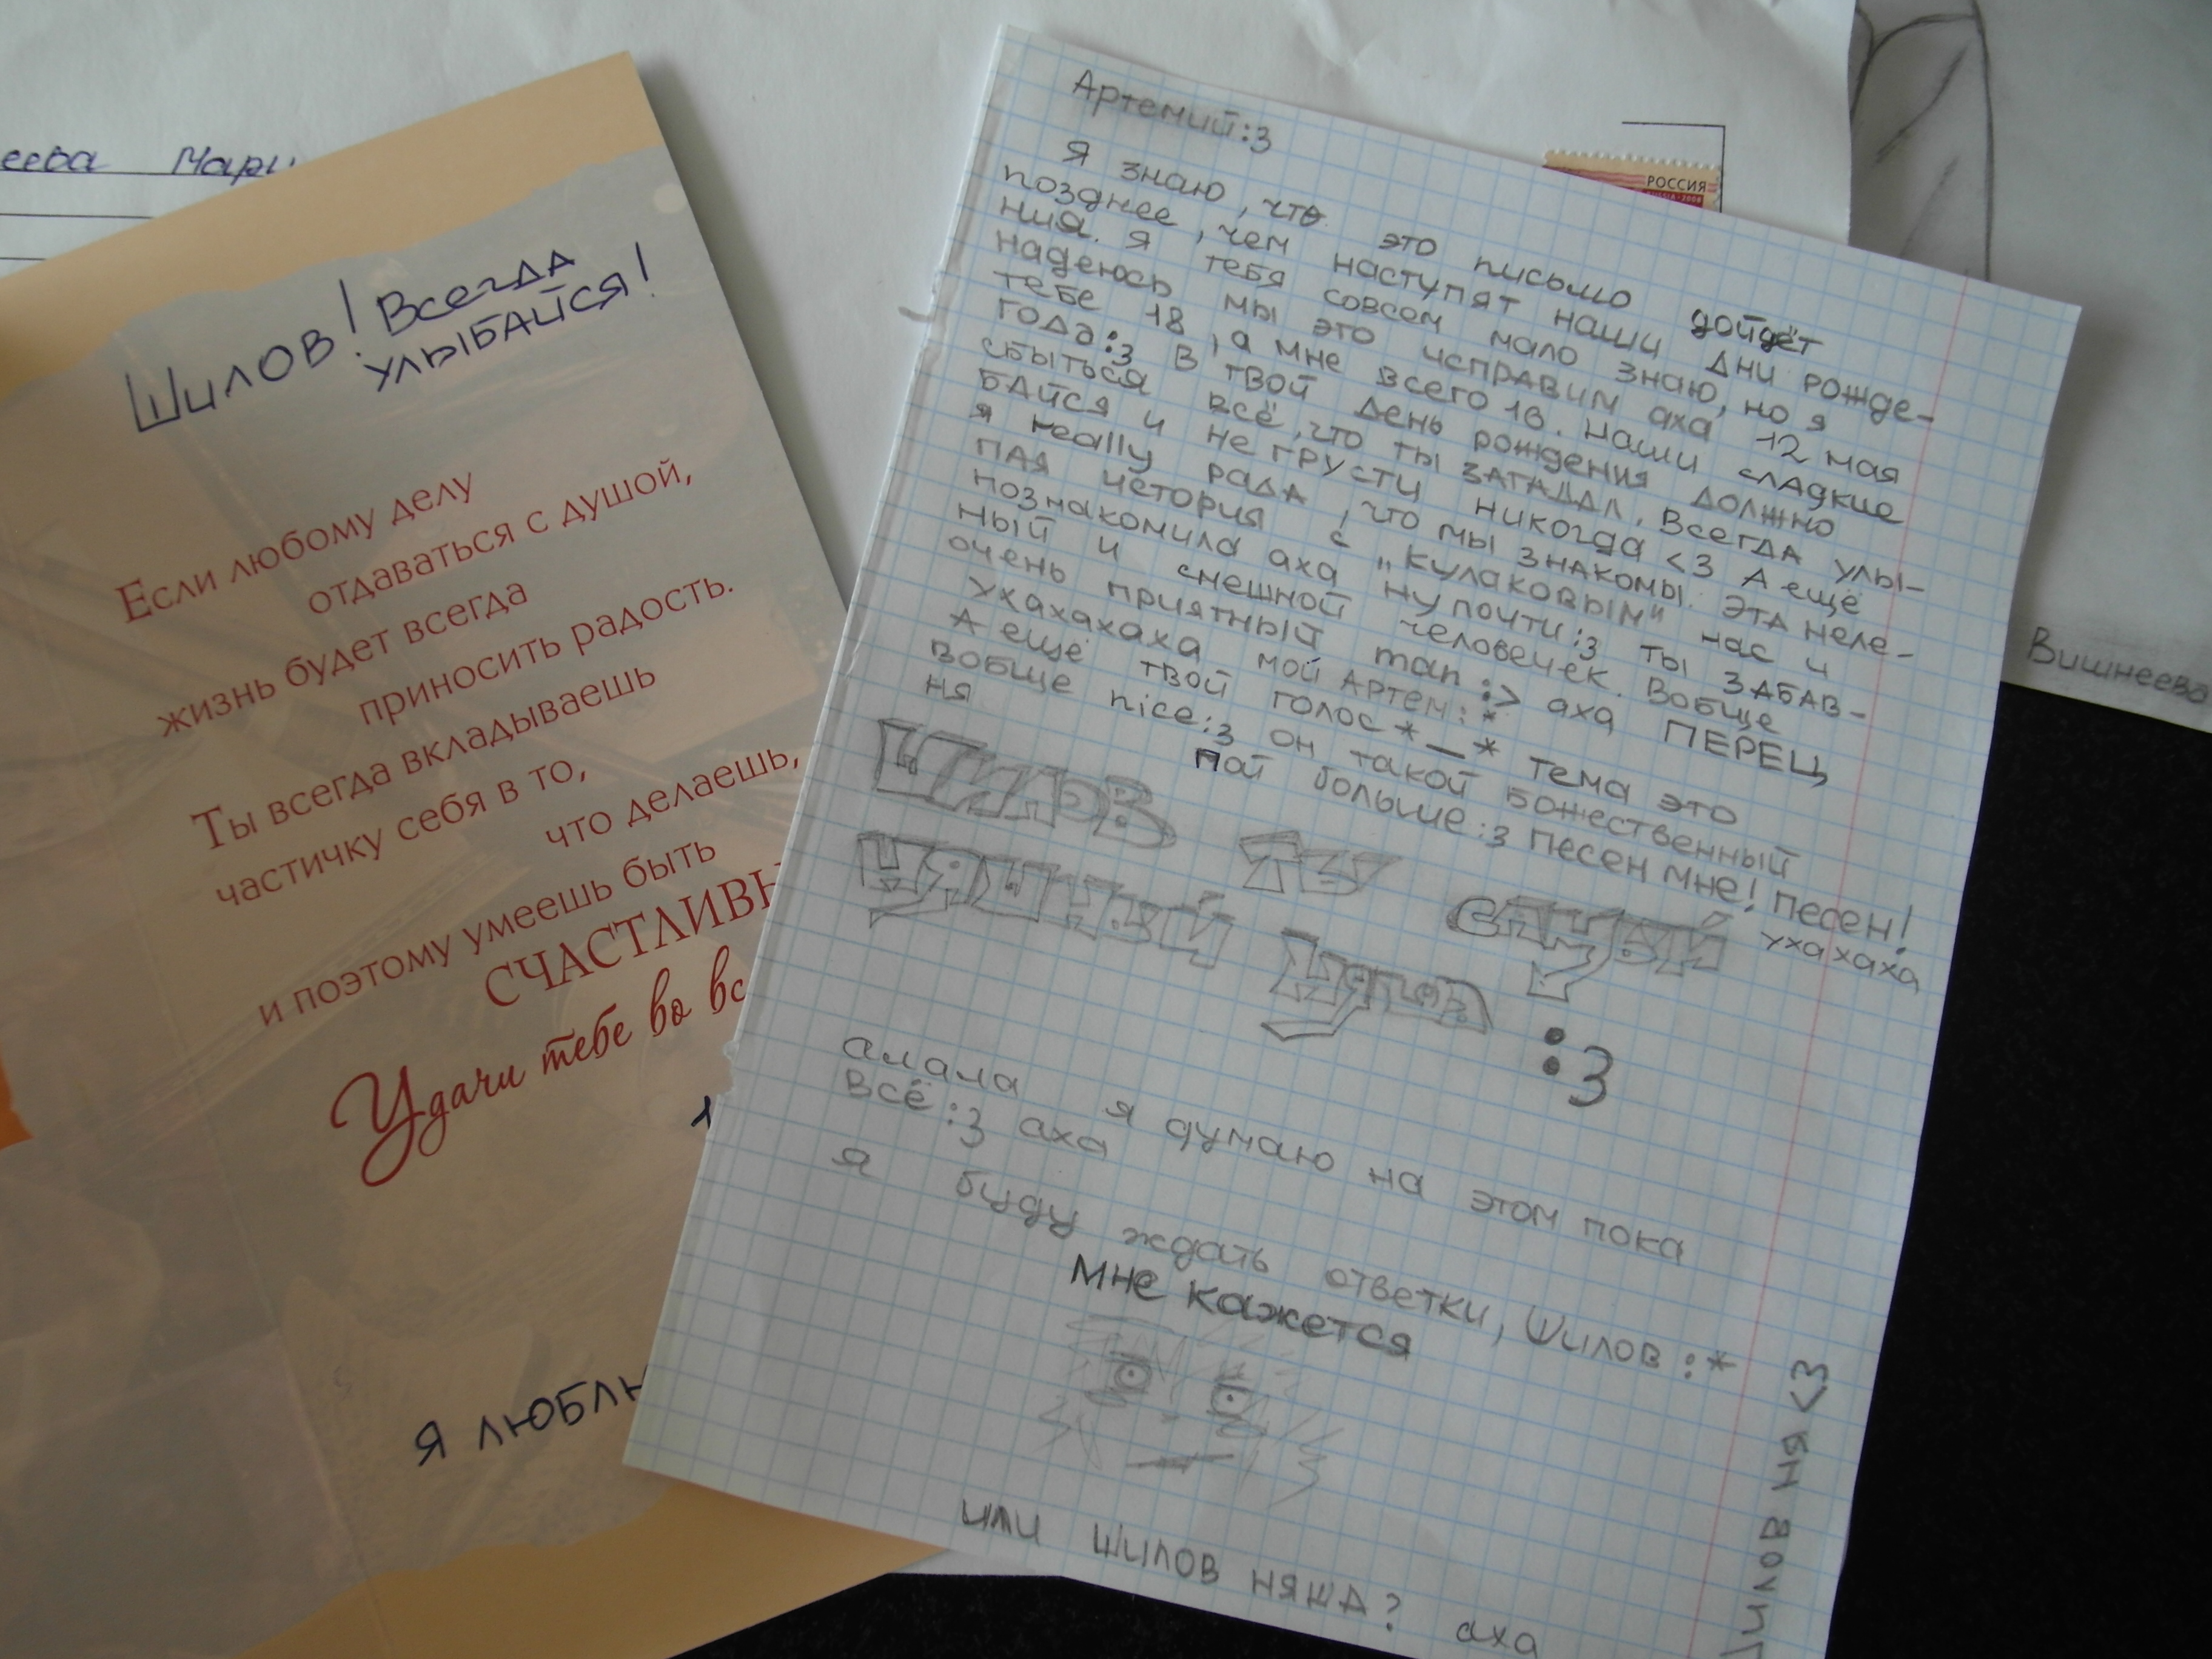 еева Мари
Шилов! Всегда
улыбайся!
Если любому делу
отдаваться с душой,
жизнь будет всегда
приносить радость.
Ты всегда вкладываешь
частичку себя в то,
что делаешь,
и поэтому умеешь быть
СЧАСТЛИВЫ
Удачи тебе во вс
Я люблю
РОССИЯ
Вишнеева
Артемий:3
Я знаю, что это письмо дойдёт
позднее, чем наступят наши дни рожде-
ния. Я тебя совсем мало знаю, но я
надеюсь мы это исправим аха 12 мая
тебе 18, а мне всего 16. Наши сладкие
года:3 В твой день рождения должно
сбыться всё, что ты загадал. Всегда улы-
байся и не грусти никогда <3 А ещё
я really рада, что мы знакомы. Эта неле-
пая история с "Кулаковым" нас и
познакомила аха ну почти:3 ты забав-
ный и смешной человечек. Вобще
очень приятный man :> аха ПЕРЕЦ
Ухахахаха мой Артем:*
А ещё твой голос *_* тема это
вобще nice:3 он такой божественный
ня Пой больше:3 Песен мне! Песен!
ухахаха
Шилов
ты самый
няшный
Шилов
:3
алала я думаю на этом пока
всё:3 аха
я буду ждать ответки, Шилов:*
Мне кажется
или Шилов няша? аха
Шилов ня <3